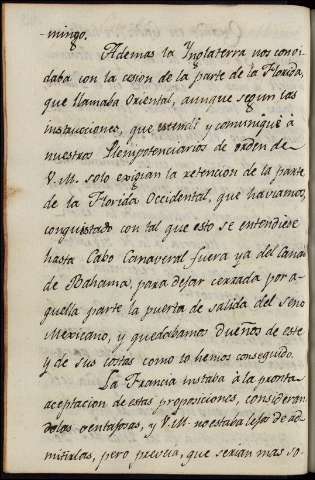 -mingo.
Ademas la Ynglaterra nos convi
daba con la cesion de la parte de la Florida,
que llamaba Oriental, aunque segun las
instrucciones, que extendi y comuniquè à
nuestros Plenipotenciarios de orden de
V.M. solo exigian la retencion de la parte
de la Florida Occidental, que haviamos
conquistado con tal que esto se entendiese
hasta Cabo Cañaveral fuera ya del Canal
de Bahama, para dejar cerrada por a-
quella parte la puerta de salida del Seno
Mexicano, y quedabamos dueños de este
y de sus costas como lo hemos conseguido.
La Francia instaba à la pronta
aceptacion de estas proposiciones, consideran
dolas ventajosas, y V.M. no estaba lejos de ad
mitirlas, pero preveia, que serian mas so-